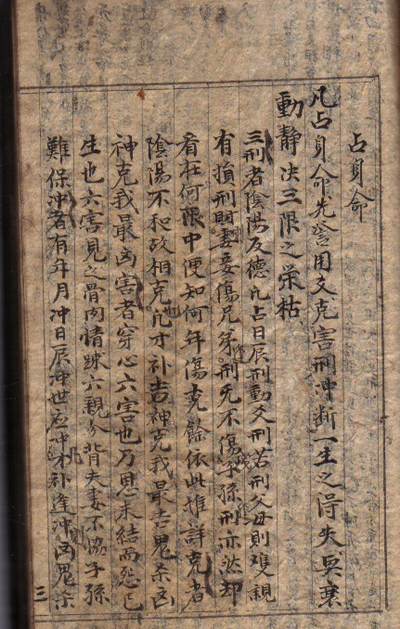 占身命
凡占身命先詳用爻克害刑冲断一生之得失與衰
動静决三限之荣枯
三刑者陰陽反德凡占日辰刑動爻刑若刑父母則雙親
有損刑財妻妾傷兄弟刑兄不傷子孫刑亦然却
看在何限中便知何年傷克餘依此推詳克者
陰陽不和故相克凡才补吉神克我最吉鬼杀凶
神克我最凶害者穿心六害也乃恩未結而怨已
生也六害見之骨肉情踈六親分背夫妻不恊子孫
難保冲者有年月冲日辰冲世应冲才补逢冲凶鬼杀
三